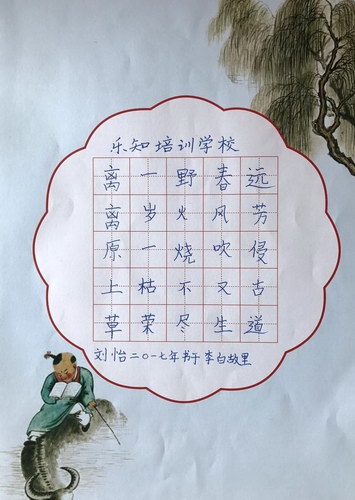 乐知培训学校
离离原上草
一岁一枯荣
野火烧不尽
春风吹又生
远芳侵古道
刘怡二〇一七年书于李白故里